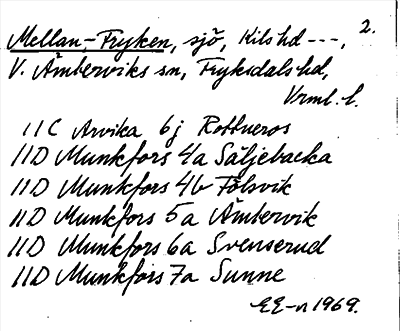 2.
Mellan-Fryken, sjö, Kils hd ---,
V. Ämterviks sn, Fryksdals hd,
Vrml. l.
11C Arvika 6j Rottneros
11D Munkfors 4a Säljebacka
11D Munkfors 4b Tolsvik
11D Munkfors 5a Ämtervik
11D Munkfors 6a Svenserud
11D Munkfors 7a Sunne
EE-n 1969.